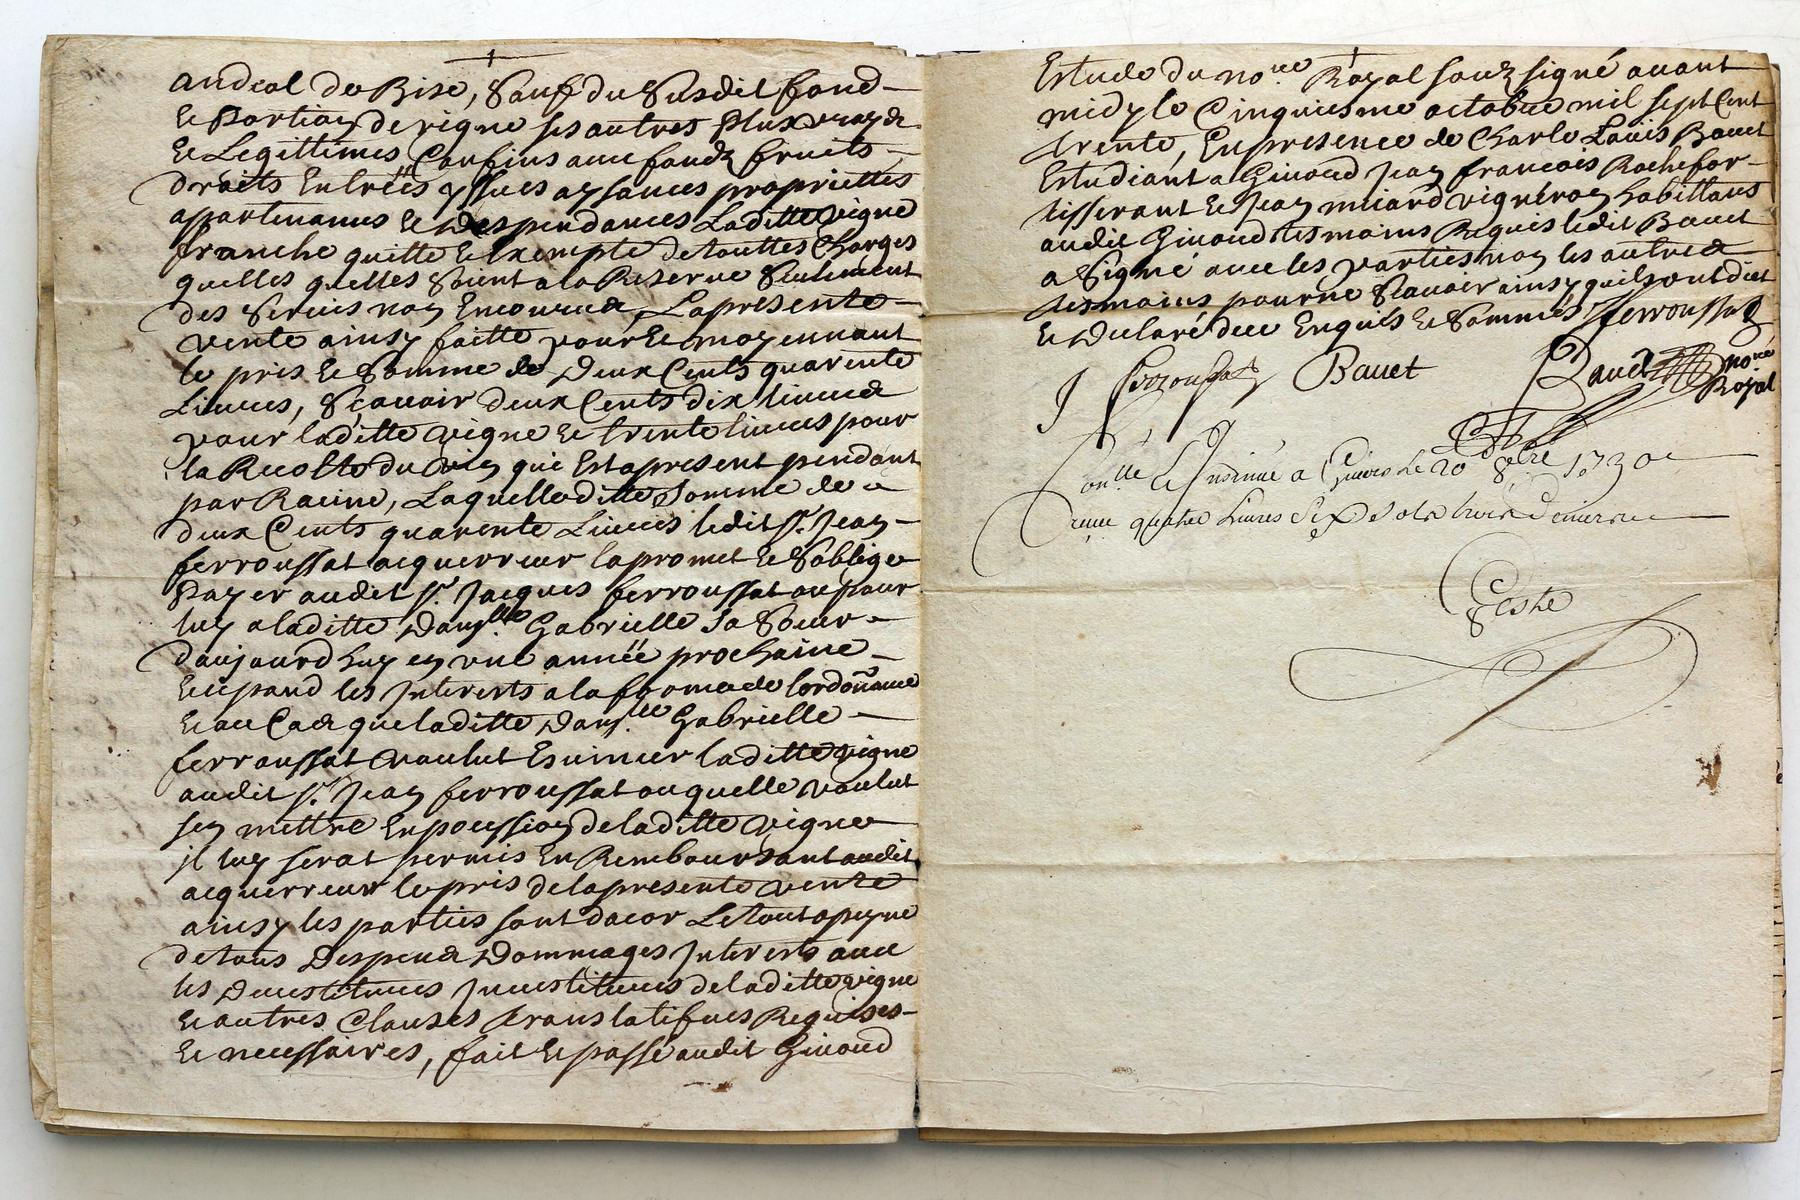 audeal de Bise, Sauf du Susdit fond
Et Portion de vigne ses autres Plus vrays
Et Legittimes Confins avec fondz fruits
droits Entrées yssues aysances propriettes
appartenances Et despendances Laditte vigne
franche quitte Et Exempte detouttes Charges
quelles quelles Soient ala Reserve Seulement
des Servis non Encourus, La presente
vente ainsy faitte pour Et moyennant
le pris Et Somme de Deux Cents quarente
Livres, Scavoir deux Cents dix livres
pour laditte vigne Et trente livres pour
la Recolte du vin qui Est apresent pendant
par Racine, Laquelle ditte Somme de
deux Cents quarente Livres ledit Sr. Jean
ferroussat acquerreur la promet Et Soblige
Payer audit Sr. Jacques ferroussat ou pour
luy a laditte Damlle. Gabrielle Sa Soeur
daujourdhuy en une année prochaine
les Interests ala forme de lordonnance
Et au Cas que laditte Damlle. Gabrielle
ferroussat voulut laditte vigne
audit Sr. Jean ferroussat ou quelle voulut
sen mettre En pocession de laditte vigne
jl luy serat permis En Remboursant audit
acquerreur le pris de la presente vente
ainsy les parties sont dacor Le tout apeyne
de tous Despens Dommages Interests avec
les Devestitures Investitures de laditte vigne
Et autres Clauses translatifves Requises
Et necessaires, fait Et passé audit Givord
Estude du nore. Royal souzsigné avant
midy le Cinquiesme octobre mil sept Cent
trente, En presence de Charle Louis Bauet
Estudiant a Givord Jean francois Rochefor
tisserant Et Jean miard vigneron habittans
audit Givord tesmoins Requis ledit Bauet
a Signé avec les parties non les autres
tesmoins pour ne Scavoir ainsy quils ont dict
Et Declaré de ce Enquis Et Sommés ferroussat
J ferroussat Bauet nore
Royal
Conlle Et Insinué a Givors le 20 8bre 1730
Receu quatre Livres Six Sols trois deniers